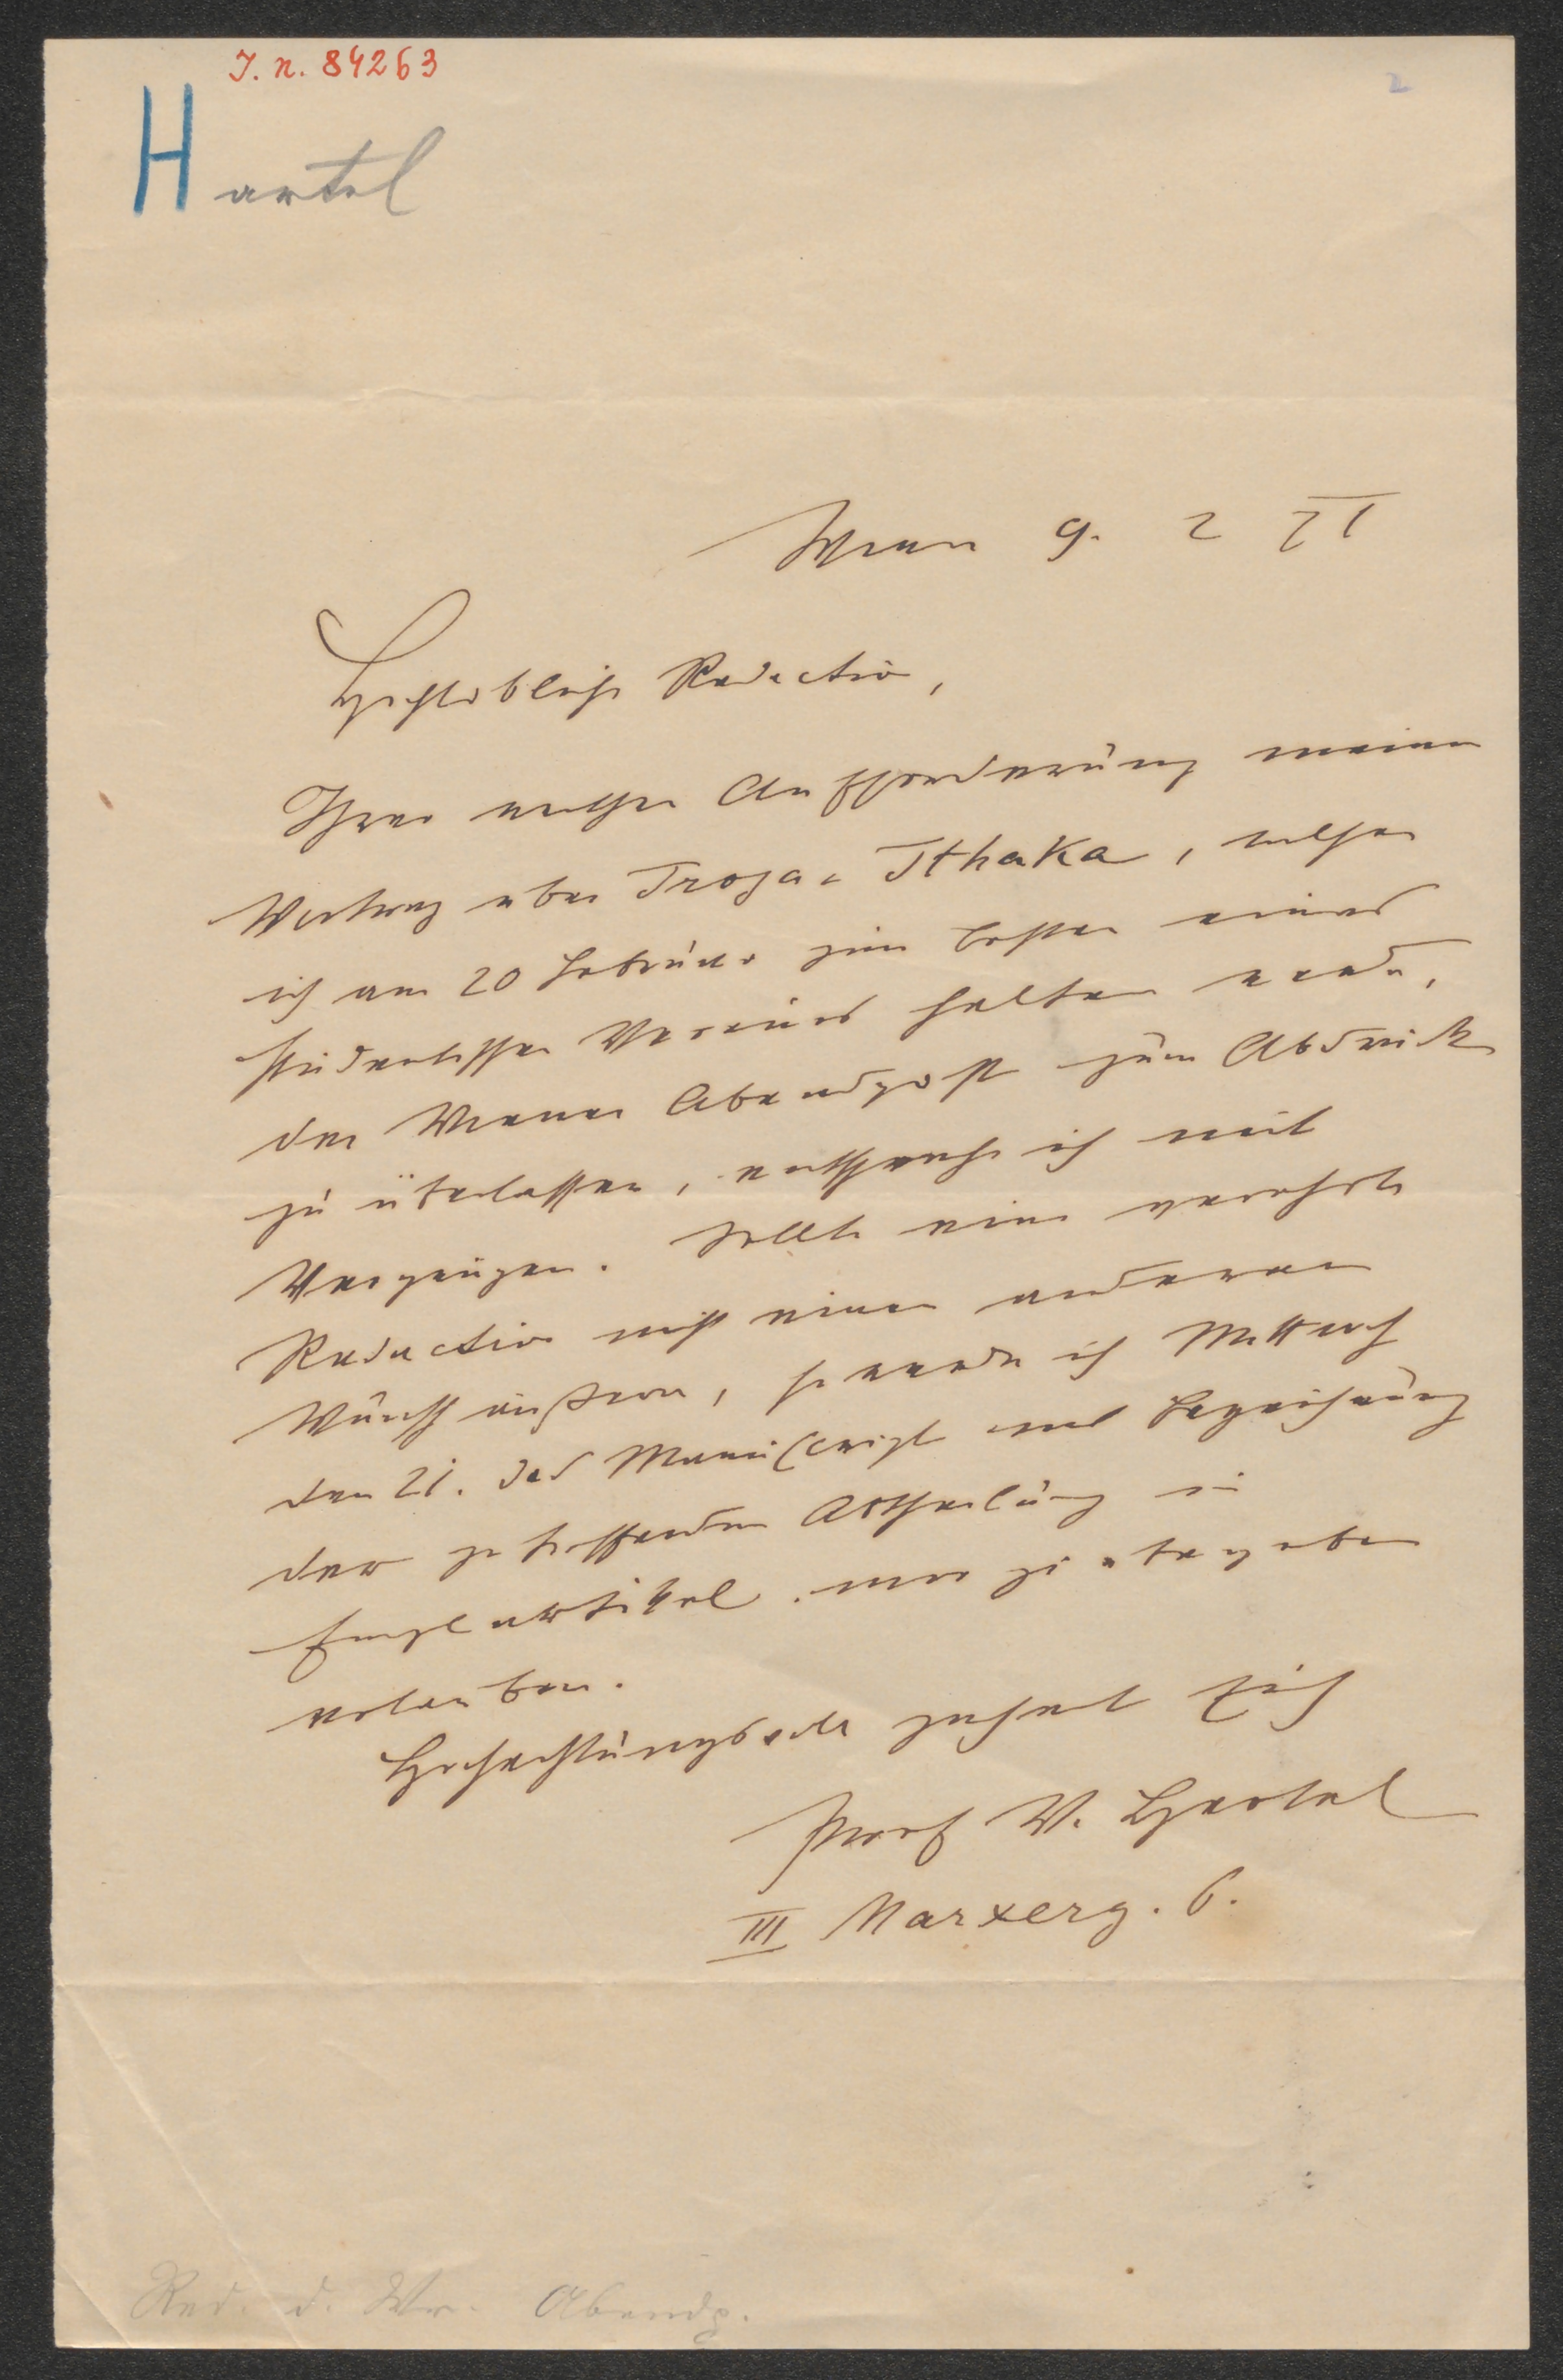 I. n. 84263
2
Hartel
Wien 9. 2 71
Hochlöbliche Redaction,
Ihrer werthen Aufforderung meinen
Vortrag über Troja u Ithaka, welchen
ich am 20 Februar zum Besten eines
studentischen Vereines halten werde,
der Wiener Abendpost zum Abdruck
zu überlassen, entspreche ich mit
Vergnügen. Sollte eine verehrte
Redaction nicht einen anderen
Wunsch äußern, so werde ich Mittwoch
den 21. das Manuscript mit Bezeichnung
der zu treffenden Abtheilung in
Einzelartikel mir zu übergeben
erlauben.
Hochachtungsvoll zeichnet sich
Prof W. Hartel
III Marxerg. 6.
Red. d. Wr. Abendp.